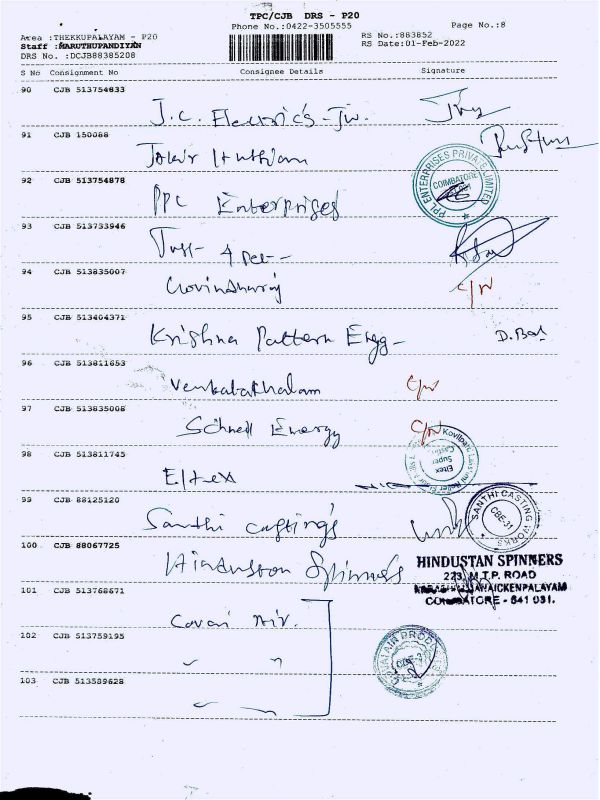 TPC/CJB DRS - P20
Phone No.:0422-3505555
Page No.:8
Area :THEKKUPALAYAM - P20
Staff :MARUTHUPANDIYAN
DRS No. :DCJB88385208
RS No.:883852
RS Date:01-Feb-2022
S No Consignment No Consignee Details Signature
90 CJB 513754833
J.C. Electrics - Tw.
91 CJB 150088
92 CJB 513754878
PPL Enterprises
PPL ENTERPRISES PRIVATE LIMITED
COIMBATORE
93 CJB 513733946
94 CJB 513835007
Govindharaj
95 CJB 513404371
Krishna Pattern Engg -
96 CJB 513811653
Venkatathalam
97 CJB 513835008
Schnell Energy
98 CJB 513811745
Eltex
Eltex
Super
99 CJB 88125120
Santhi castings
SANTHI CASTING WORKS
CBE-31
100 CJB 88067725
Hindustan Spinners
HINDUSTAN SPINNERS
223, M.T.P. ROAD
COIMBATORE - 641 031.
101 CJB 513768671
Covai Air.
102 CJB 513759195
103 CJB 513589628